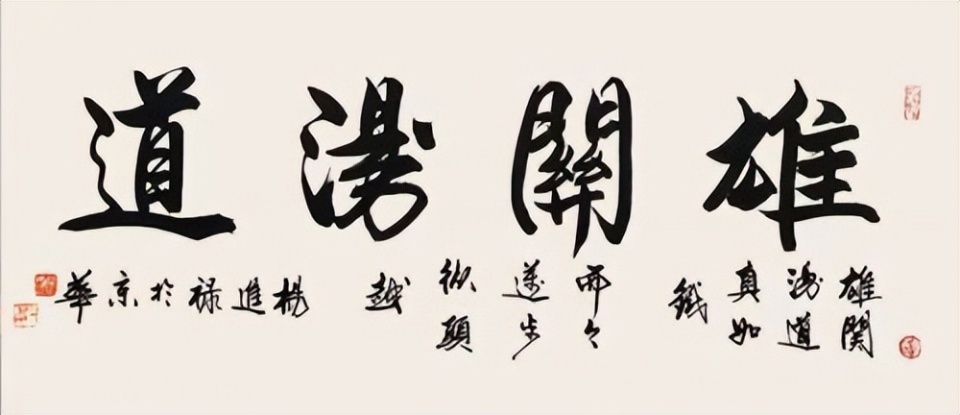 雄關漫道
雄関
漫道
真如
鐵
而今
邁步
從頭
越
楊進禄於京華